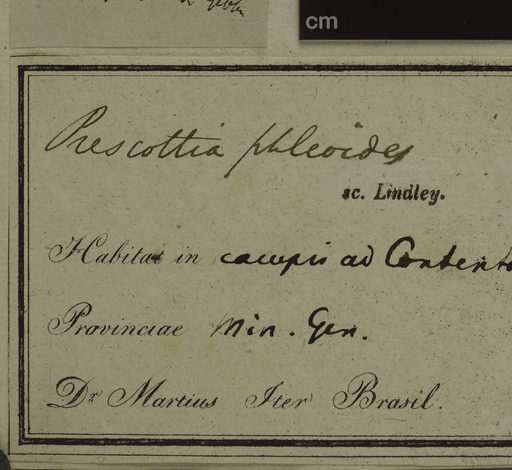 cm
Prescottia phleoides
sc. Lindley.
Habitat in campis ad Contento
Provinciae Min. Gen.
Dr Martius Iter Brasil.